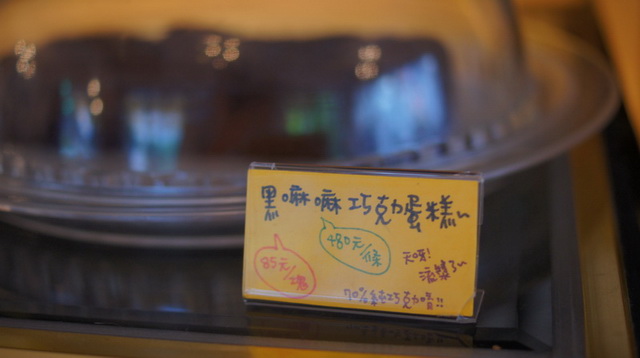 黑嘛嘛巧克力蛋糕~
480元/條
85元/塊
天呀!
滾漿了~
70%純巧克力唷!!